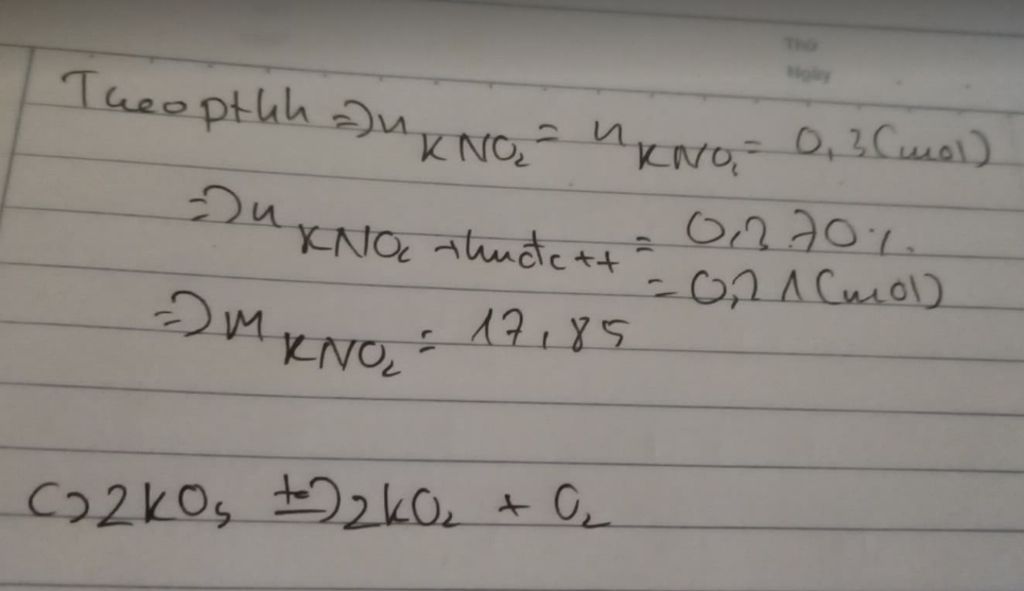 Thứ
Ngày
Theo pthh => n KNO₂ = n KNO₃ = 0,3 (mol)
=> n KNO₂ thực tế = 0,3.70%
= 0,21 (mol)
=> m KNO₂ = 17,85
c) 2KO₃ t°=> 2KO₂ + O₂